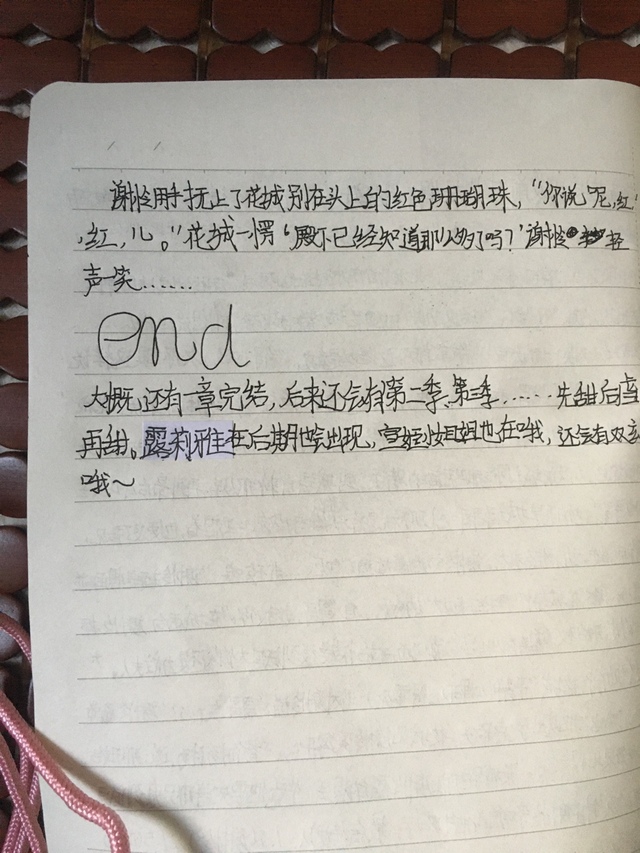 谢怜用手抚上了花城别在头上的红色珊瑚珠，“你说呢，红
，红，儿。”花城一愣‘殿下已经知道那么多了吗？’谢怜 轻
声笑……
end
大概还有一章完结，后来还会有第二季、第三季……先甜后虐
再甜。露莉雅在后期也会出现，宣姬姐姐也在哦，还会有双玄
哦～